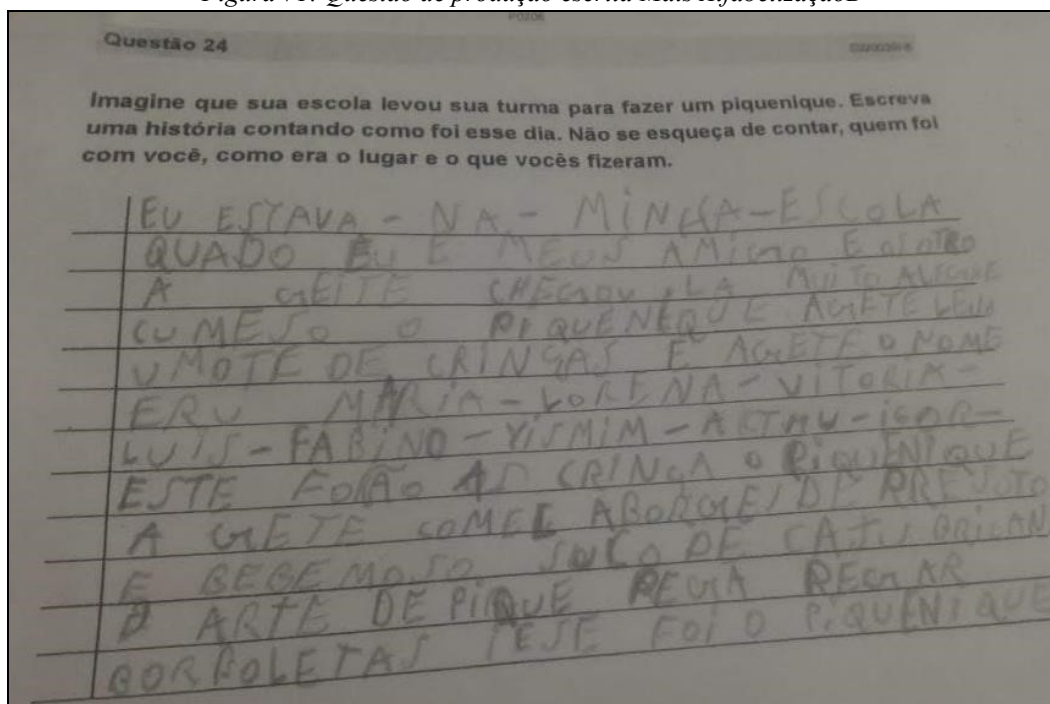 Questão 24
Imagine que sua escola levou sua turma para fazer um piquenique. Escreva
uma história contando como foi esse dia. Não se esqueça de contar, quem foi
com você, como era o lugar e o que vocês fizeram.
EU ESTAVA - NA - MINHA - ESCOLA
QUADO EU E MEUS AMIGO E OSOTRO
A GEITE CHEGOU LA MUITO ALEGRE
CUMESO O PIQUENEQUE AGETE LEVO
UMOTE DE CRINSAS E AGETE O NOME
ERU MARIA - LORENA - VITORIA -
LUIS - FABINO - YISMIM - - IGOR -
ESTE FORÃO AS CRINSA O PIQUENIQUE
A GETE COMEE ABORGE/DE PRESOTO
E BEBEMOSO SUCO DE CAJU
ARTE DE PIQUE PEGA PEGAR
BORBOLETAS ESE FOI O PIQUENIQUE